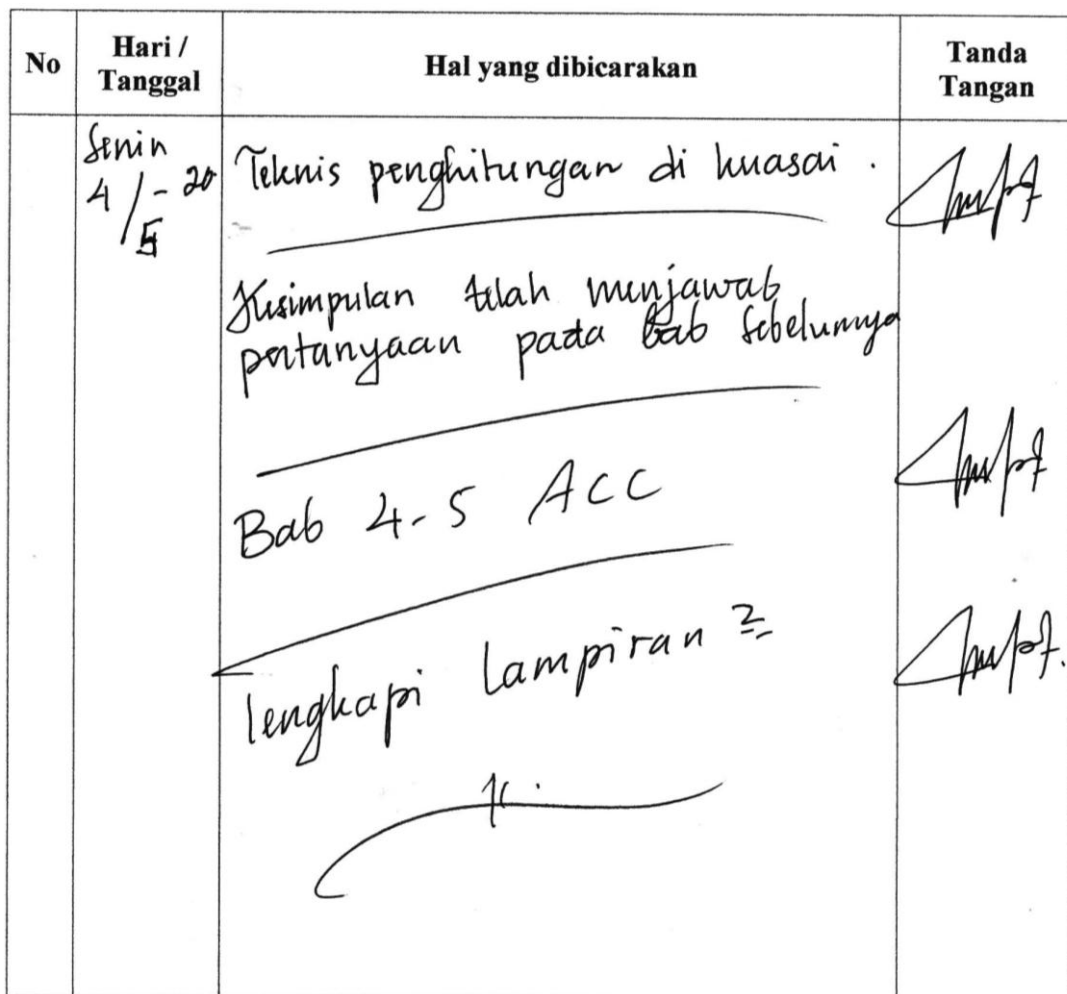 No
Hari /
Tanggal
Hal yang dibicarakan
Tanda
Tangan
Senin
4/5-20
Teknis penghitungan di kuasai.
Kesimpulan telah menjawab
pertanyaan pada bab sebelumnya
Bab 4-5 ACC
lengkapi lampiran 2